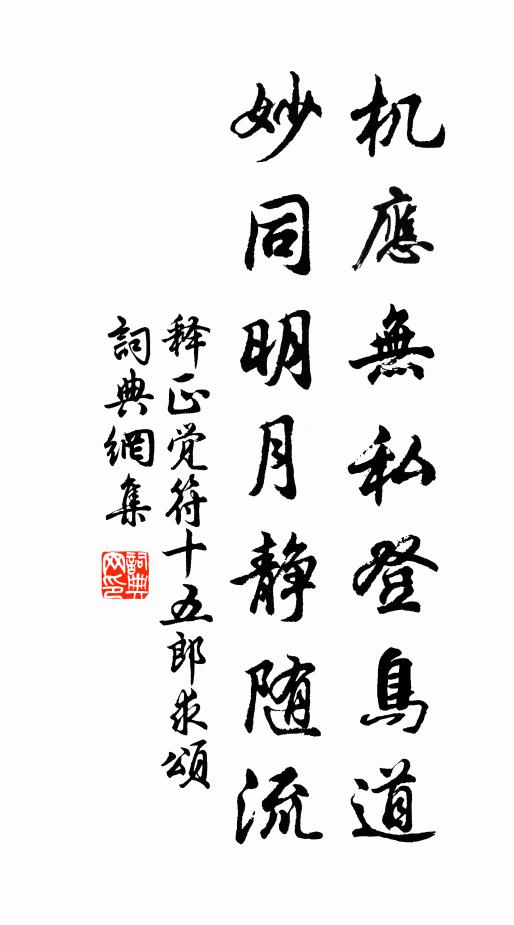 机應無私登鳥道
妙同明月静随流
释正觉符十五郎求頌
詞典網集
詞典网印